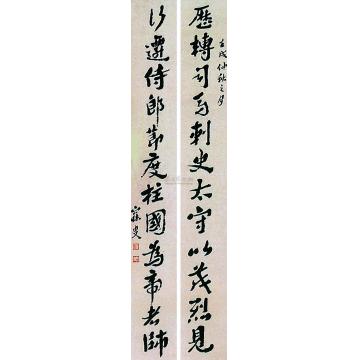 壬戌仲秋之月
歷轉司馬刺史太守以茂烈見
以遷侍郎節度柱國為帝者師
叟